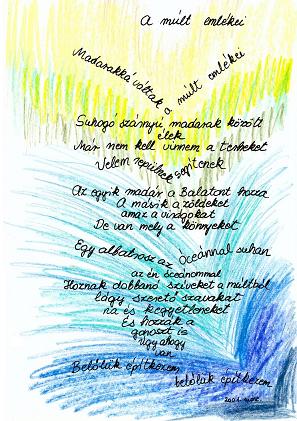 A múlt emlékei
Madarakká váltak a múlt emlékei
Suhogó szárnyú madarak között
élek
Már nem kell vinnem a terheket
Velem repülnek segítenek
Az egyik madár a Balatont hozza
A másik a zöldeket
amaz a virágokat
De van mely a könnyeket
Egy albatrosz az Óceánnal suhan
az én óceánommal
Hoznak dobbanó szíveket a múltból
lágy, szerető szavakat
na és kegyetleneket
És hozzák a
gonoszt is
Úgy ahogy
van
Belőlük építkezem
belőlük építkezem
2001.